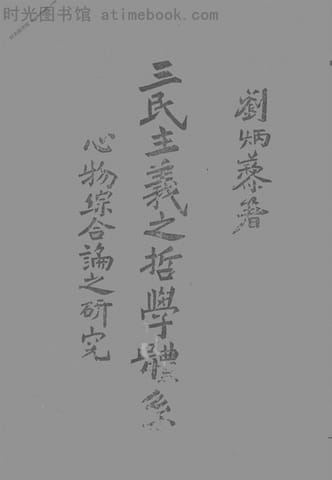 时光图书馆 atimebook.com
劉炳藜著
三民主義之哲學體系
心物綜合論之研究